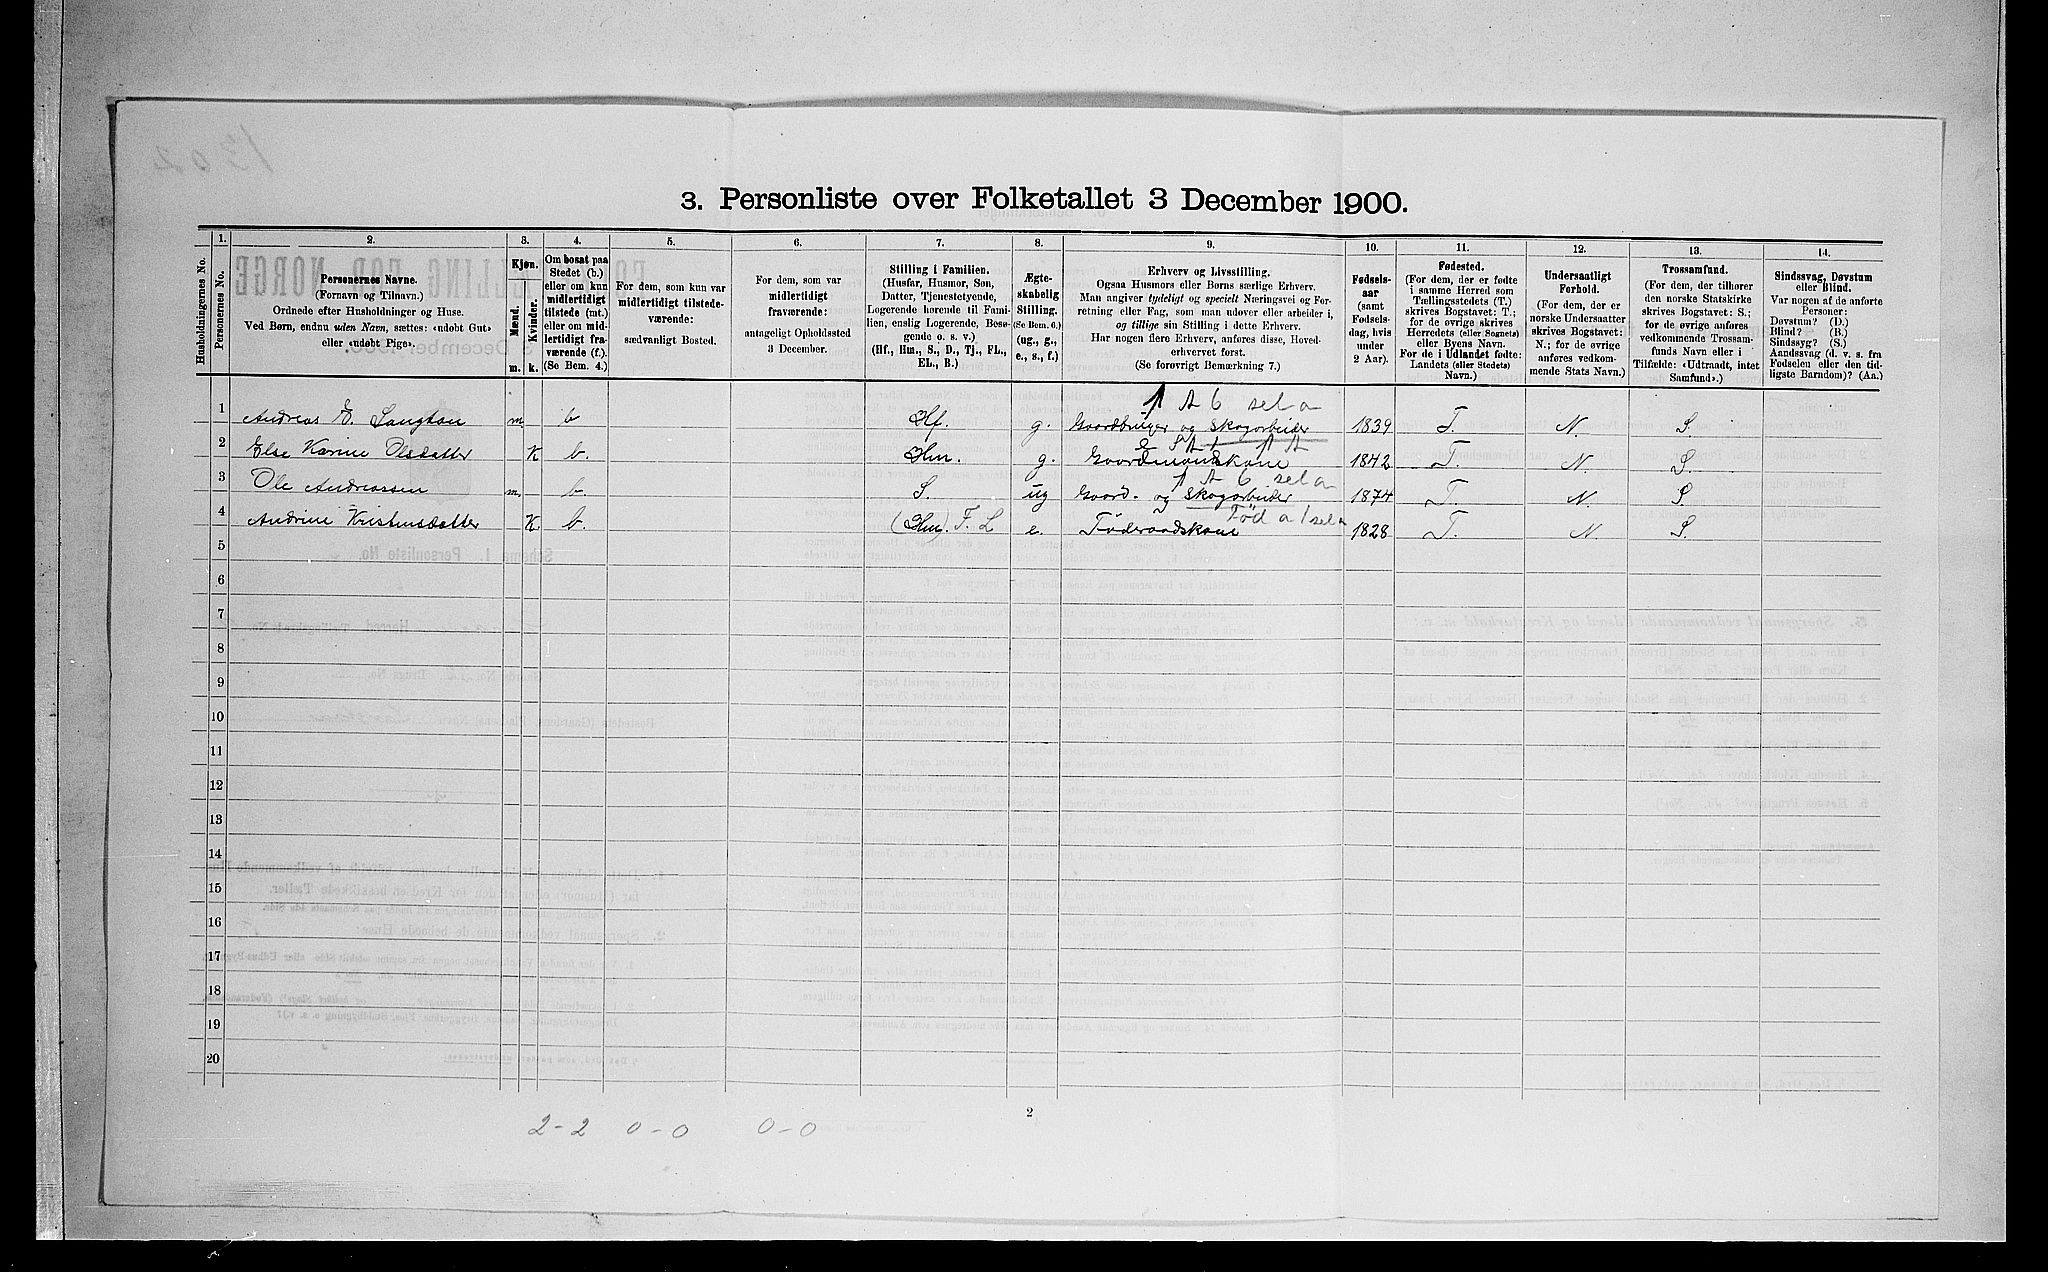 3. Personliste over Folketallet 3 December 1900.
1. 2. 3. 4. 5. 6. 7. 8. 9. 10. 11. 12. 13. 14.
Husholdningernes No.
Personernes No.
Personernes Navne.
(Fornavn og Tilnavn.)
Ordnede efter Husholdninger og Huse.
Ved Børn, endnu uden Navn, sættes: «udøbt Gut»
eller «udøbt Pige».
Kjøn.
Mænd.
Kvinder.
m. k.
Om bosat paa
Stedet (b.)
eller om kun
midlertidigt
tilstede (mt.)
eller om mid-
lertidigt fra-
værende (f.).
(Se Bem. 4.)
For dem, som kun var
midlertidigt tilstede-
værende:
sædvanligt Bosted.
For dem, som var
midlertidigt
fraværende:
antageligt Opholdssted
3 December.
Stilling i Familien.
(Husfar, Husmor, Søn,
Datter, Tjenestetyende,
Logerende hørende til Fami-
lien, enslig Logerende, Besø-
gende o. s. v.)
(Hf., Hm., S., D., Tj., FL.,
EL., B.)
Ægte-
skabelig
Stilling.
(Se Bem. 6.)
(ug., g.,
e., s., f.)
Erhverv og Livsstilling.
Ogsaa Husmors eller Børns særlige Erhverv.
Man angiver tydeligt og specielt Næringsvei og For-
retning eller Fag, som man udøver eller arbeider i,
og tillige sin Stilling i dette Erhverv.
Har nogen flere Erhverv, anføres disse, Hoved-
erhvervet først.
(Se forøvrigt Bemærkning 7.)
Fødsels-
aar
(samt
Fødsels-
dag, hvis
under
2 Aar).
Fødested.
(For dem, der er fødte
i samme Herred som
Tællingsstedets (T.)
skrives Bogstavet: T.;
for de øvrige skrives
Herredets (eller Sognets)
eller Byens Navn.
For de i Udlandet fødte:
Landets (eller Stedets)
Navn.)
Undersaatligt
Forhold.
(For dem, der er
norske Undersaatter
skrives Bogstavet:
N.; for de øvrige
anføres vedkom-
mende Stats Navn.)
Trossamfund.
(For dem, der tilhører
den norske Statskirke
skrives Bogstavet: S.;
for de øvrige anføres
vedkommende Trossam-
funds Navn eller i
Tilfælde: «Udtraadt, intet
Samfund».)
Sindssvag, Døvstum
eller Blind.
Var nogen af de anførte
Personer:
Døvstum? (D.)
Blind? (B.)
Sindssyg? (S.)
Aandssvag (d. v. s. fra
Fødselen eller den tid-
ligste Barndom)? (Aa.)
1 Andreas E. Langkaas m. b Hf. g. Gaardbruger og Skogarbeider 1839 T. N. S.
2 Else Karine Olsdatter K b. Hm. g. Gaardmandskone 1842 T. N. S.
3 Ole Andreassen m. b. S. ug Gaard- og Skogarbeider 1874 T. N. S.
4 Andrine Kristensdatter K. b. (Hm). F. L e. Føderaadskone 1828 T. N. S.
5
6
7
8
9
10
11
12
13
14
15
16
17
18
19
20
2-2 0-0 0-0
2